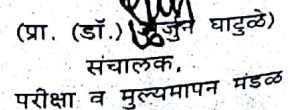 (प्रा. (डॉ.) घाटुळे)
संचालक,
परीक्षा व मुल्यमापन मंडळ